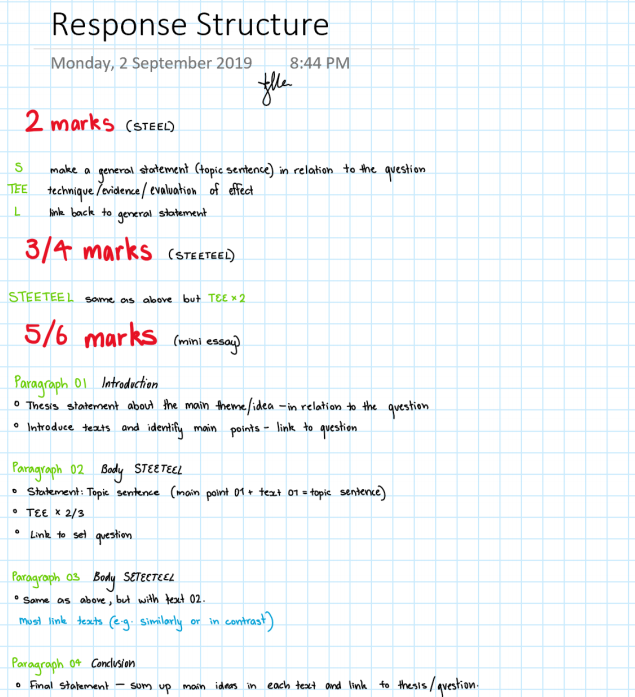 Response Structure
Monday, 2 September 2019 8:44 PM
2 marks (STEEL)
S make a general statement (topic sentence) in relation to the question
TEE technique/evidence/evaluation of effect
L link back to general statement
3/4 marks (STEETEEL)
STEETEEL same as above but TEE × 2
5/6 marks (mini essay)
Paragraph 01 Introduction
° Thesis statement about the main theme/idea - in relation to the question
° Introduce texts and identify main points - link to question
Paragraph 02 Body STEETEEL
° Statement: Topic sentence (main point 01 + text 01 = topic sentence)
° TEE × 2/3
° Link to set question
Paragraph 03 Body SETEETEEL
° Same as above, but with text 02.
must link texts (e.g. similarly or in contrast)
Paragraph 04 Conclusion
° Final statement - sum up main ideas in each text and link to thesis/question.